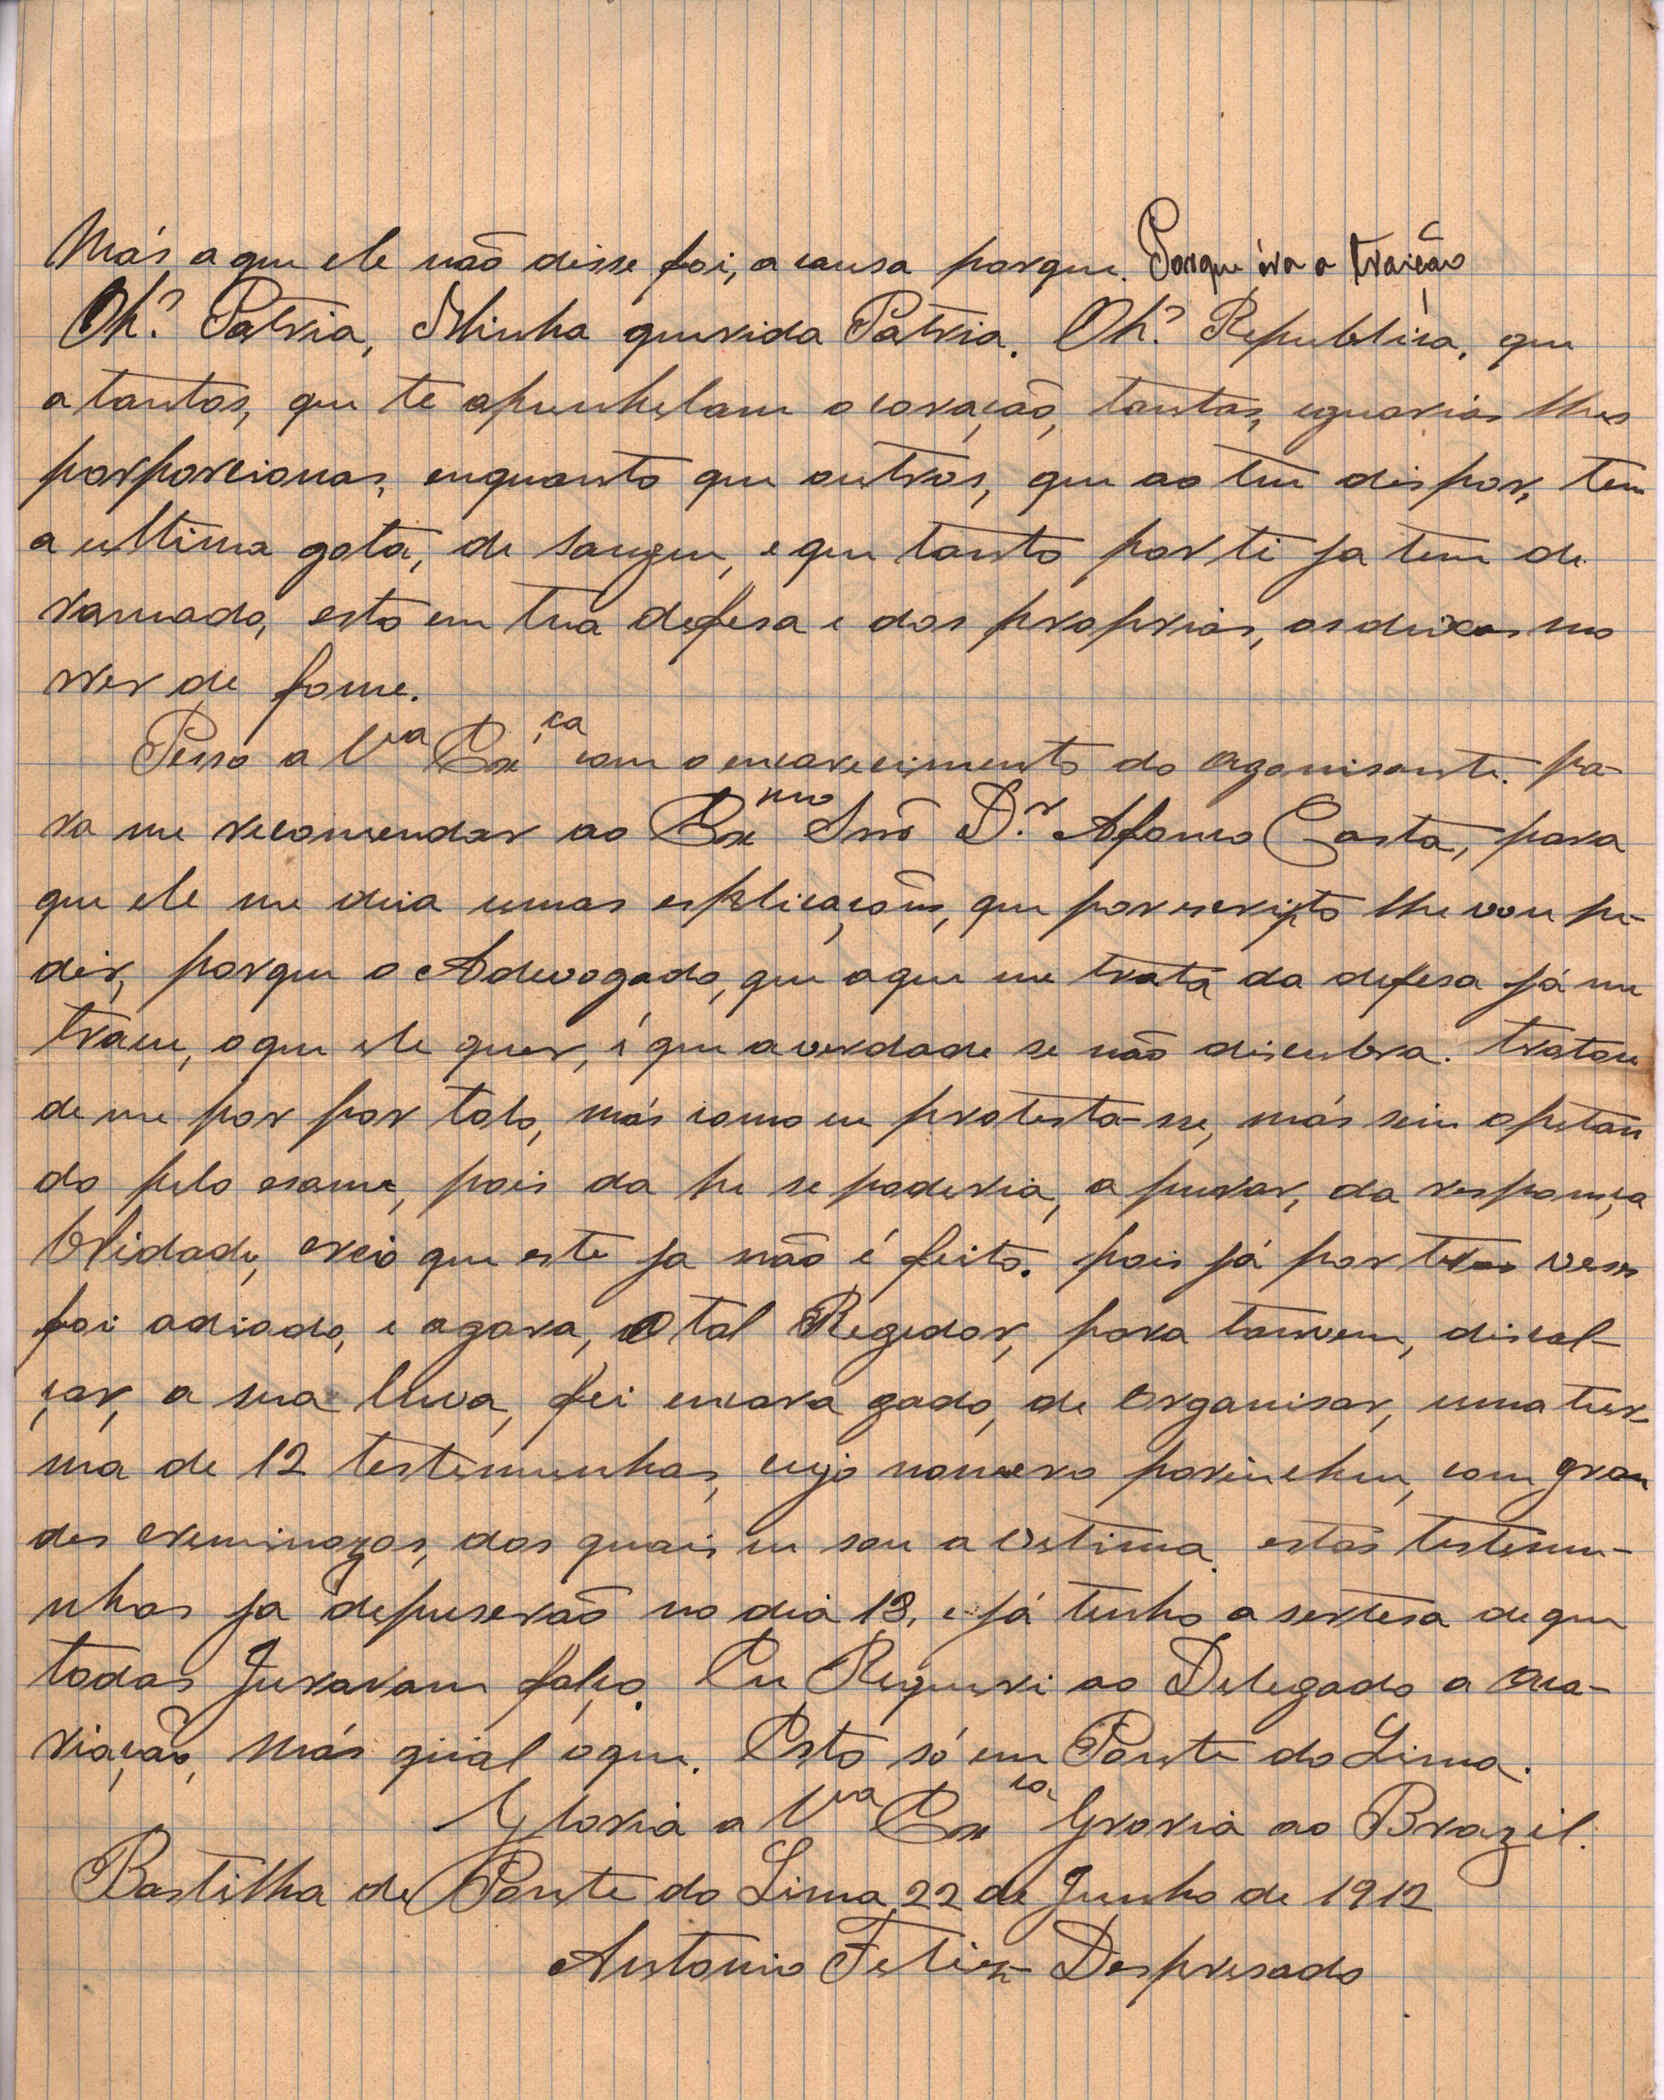 Más, a que ele não disse foi, a causa porque. Porque éra a traição
Oh? Patria, Minha querida Patria. Oh? Republica, que
a tantos, que te apunhelam o coração, tantas, eguarias lhes
porporcionas, enquanto que outros, que ao teu dispor, tem
a ultima gota, de sangue, e que tanto por ti ja tem de
ramado, esto em tua defesa e dos proprios, os deixas mo
rrer de fome.
Pesso a Vª Exçª com o encarecimento do agonisante. pa-
ra me recomendar ao Exmo Snr Dr. Afonso Costa, para
que ele me deia umas esplicações, que por escripto lhe vou pe-
dir, porque o Adevogado, que aqui me trata da defesa já me
traiu, o que ele quer, é que a verdade se não discubra. tratou
de me por por tolo, más como eu protesta-se, más sim opetan
do pelo esame, pois da hi se poderia, a purar, da responça
blidade, creio que este ja não é feito. pois já por tres veses
foi adiado, e agora, o tal Regedor, para tamvem, discal-
çar, a sua luva, foi encara gado, de organisar, uma tur-
ma de 12 testemunhas, cujo nomero porincheu, com gran
des creminozos, dos quais eu sou a vetima. estas testemu-
nhas ja depuserão no dia 13, e já tenho a sertesa de que
todas Juraram falço. Eu Requeri ao Delegado a cua-
riação, Más qüal o que. Esto só em Ponte do Lima.
Gloria a Vª Exçª Groria ao Brazil.
Bastilha de Ponte do Lima 22 de Junho de 1912
Antonio Feliz Despresado